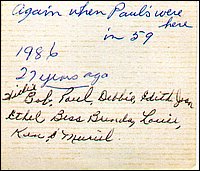 Again when Paul's were
here
in 59
1986
27 years ago
Bob, Paul, Debbie, Edith, Jan
Ethel Bess Brenda, Louie,
Ken & Muriel.